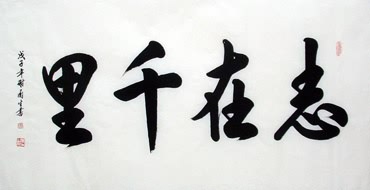 志在千里
戊子年
书